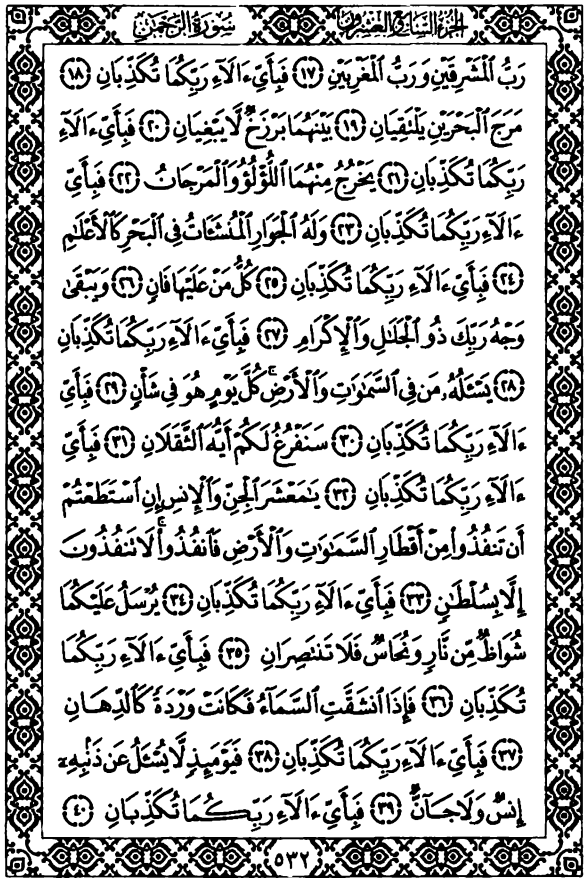 الجزء السابع والعشرون سورة الرحمن
رَبُّ ٱلْمَشْرِقَيْنِ وَرَبُّ ٱلْمَغْرِبَيْنِ ﴿١٧﴾ فَبِأَىِّ ءَالَآءِ رَبِّكُمَا تُكَذِّبَانِ ﴿١٨﴾
مَرَجَ ٱلْبَحْرَيْنِ يَلْتَقِيَانِ ﴿١٩﴾ بَيْنَهُمَا بَرْزَخٌ لَّا يَبْغِيَانِ ﴿٢٠﴾ فَبِأَىِّ ءَالَآءِ
رَبِّكُمَا تُكَذِّبَانِ ﴿٢١﴾ يَخْرُجُ مِنْهُمَا ٱللُّؤْلُؤُ وَٱلْمَرْجَانُ ﴿٢٢﴾ فَبِأَىِّ
ءَالَآءِ رَبِّكُمَا تُكَذِّبَانِ ﴿٢٣﴾ وَلَهُ ٱلْجَوَارِ ٱلْمُنشَـَٔاتُ فِى ٱلْبَحْرِ كَٱلْأَعْلَٰمِ
﴿٢٤﴾ فَبِأَىِّ ءَالَآءِ رَبِّكُمَا تُكَذِّبَانِ ﴿٢٥﴾ كُلُّ مَنْ عَلَيْهَا فَانٍ ﴿٢٦﴾ وَيَبْقَىٰ
وَجْهُ رَبِّكَ ذُو ٱلْجَلَٰلِ وَٱلْإِكْرَامِ ﴿٢٧﴾ فَبِأَىِّ ءَالَآءِ رَبِّكُمَا تُكَذِّبَانِ
﴿٢٨﴾ يَسْـَٔلُهُۥ مَن فِى ٱلسَّمَٰوَٰتِ وَٱلْأَرْضِ ۚ كُلَّ يَوْمٍ هُوَ فِى شَأْنٍ ﴿٢٩﴾ فَبِأَىِّ
ءَالَآءِ رَبِّكُمَا تُكَذِّبَانِ ﴿٣٠﴾ سَنَفْرُغُ لَكُمْ أَيُّهَ ٱلثَّقَلَانِ ﴿٣١﴾ فَبِأَىِّ
ءَالَآءِ رَبِّكُمَا تُكَذِّبَانِ ﴿٣٢﴾ يَٰمَعْشَرَ ٱلْجِنِّ وَٱلْإِنسِ إِنِ ٱسْتَطَعْتُمْ
أَن تَنفُذُوا۟ مِنْ أَقْطَارِ ٱلسَّمَٰوَٰتِ وَٱلْأَرْضِ فَٱنفُذُوا۟ ۚ لَا تَنفُذُونَ
إِلَّا بِسُلْطَٰنٍ ﴿٣٣﴾ فَبِأَىِّ ءَالَآءِ رَبِّكُمَا تُكَذِّبَانِ ﴿٣٤﴾ يُرْسَلُ عَلَيْكُمَا
شُوَاظٌ مِّن نَّارٍ وَنُحَاسٌ فَلَا تَنتَصِرَانِ ﴿٣٥﴾ فَبِأَىِّ ءَالَآءِ رَبِّكُمَا
تُكَذِّبَانِ ﴿٣٦﴾ فَإِذَا ٱنشَقَّتِ ٱلسَّمَآءُ فَكَانَتْ وَرْدَةً كَٱلدِّهَانِ
﴿٣٧﴾ فَبِأَىِّ ءَالَآءِ رَبِّكُمَا تُكَذِّبَانِ ﴿٣٨﴾ فَيَوْمَئِذٍ لَّا يُسْـَٔلُ عَن ذَنۢبِهِۦٓ
إِنسٌ وَلَا جَآنٌّ ﴿٣٩﴾ فَبِأَىِّ ءَالَآءِ رَبِّكُمَا تُكَذِّبَانِ ﴿٤٠﴾
٥٣٢